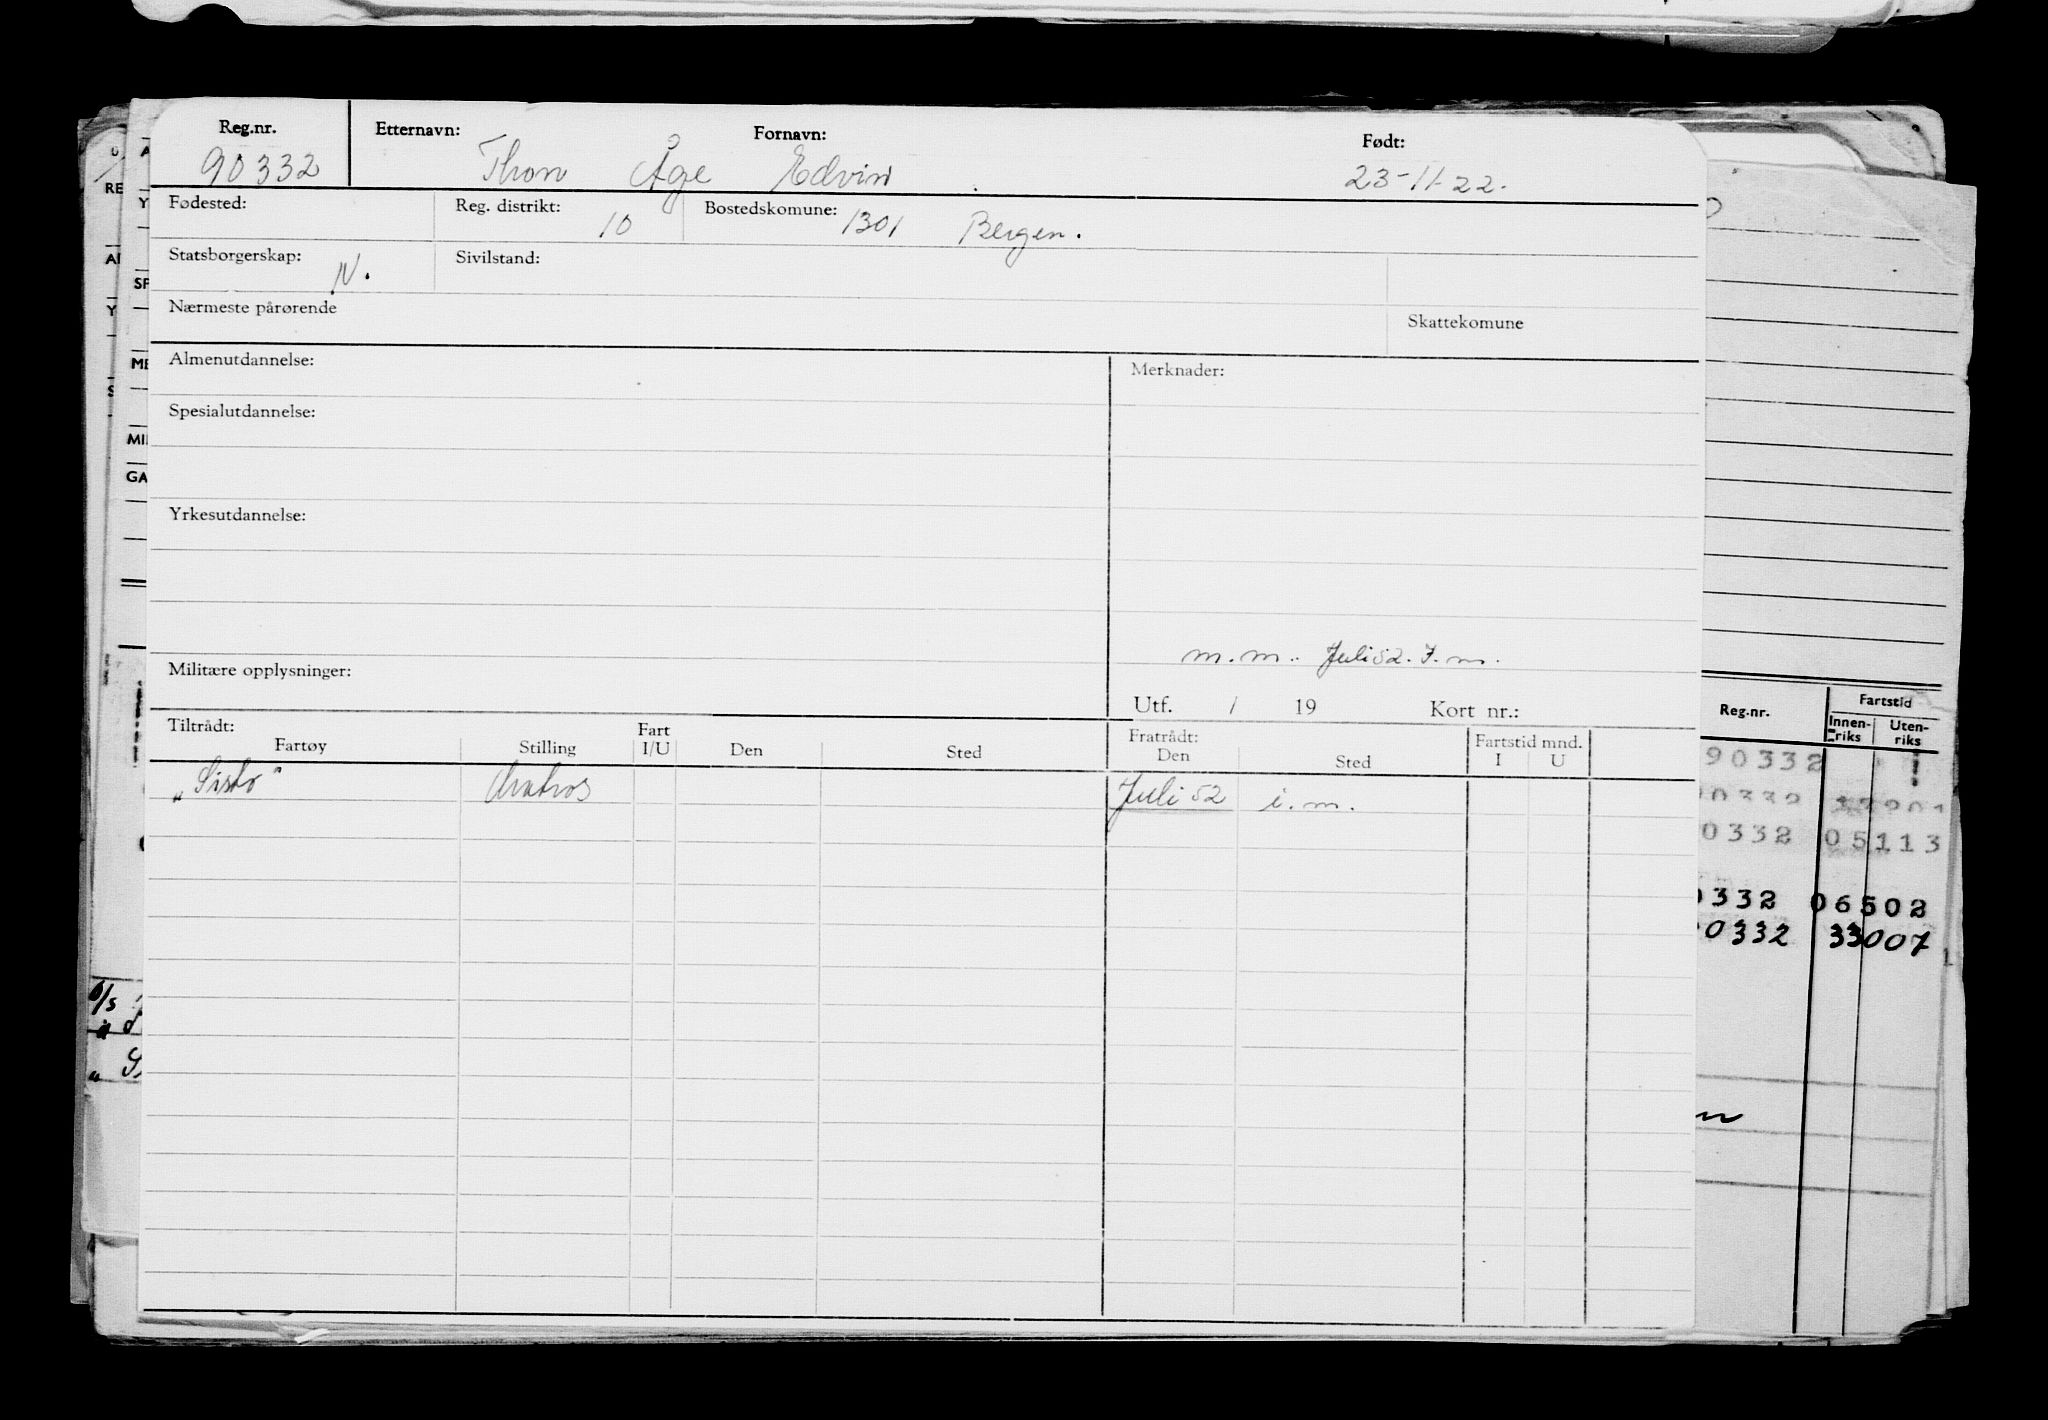 Reg.nr. Etternavn: Fornavn: Født:
90332 Thon Åge Edvin 23-11-22.
Fødested: Reg. distrikt: 10 Bostedskomune: 1301 Bergen.
Statsborgerskap: N. Sivilstand:
Nærmeste pårørende Skattekomune
Almenutdannelse: Merknader:
Spesialutdannelse:
Yrkesutdannelse:
m.m. Juli 52.
Militære opplysninger:
Utf. / 19 Kort nr.:
Tiltrådt: Fratrådt:
Fartøy Stilling Fart I/U Den Sted Den Sted Fartstid mnd. I U
„Sisto" Matros Juli 52 i.m.
RE
Y
SP
Y
ME
MI
GA
Reg.nr. Fartstid
Innen-riks Uten-riks
90332
0332 05113
0332 06502
0332 33007